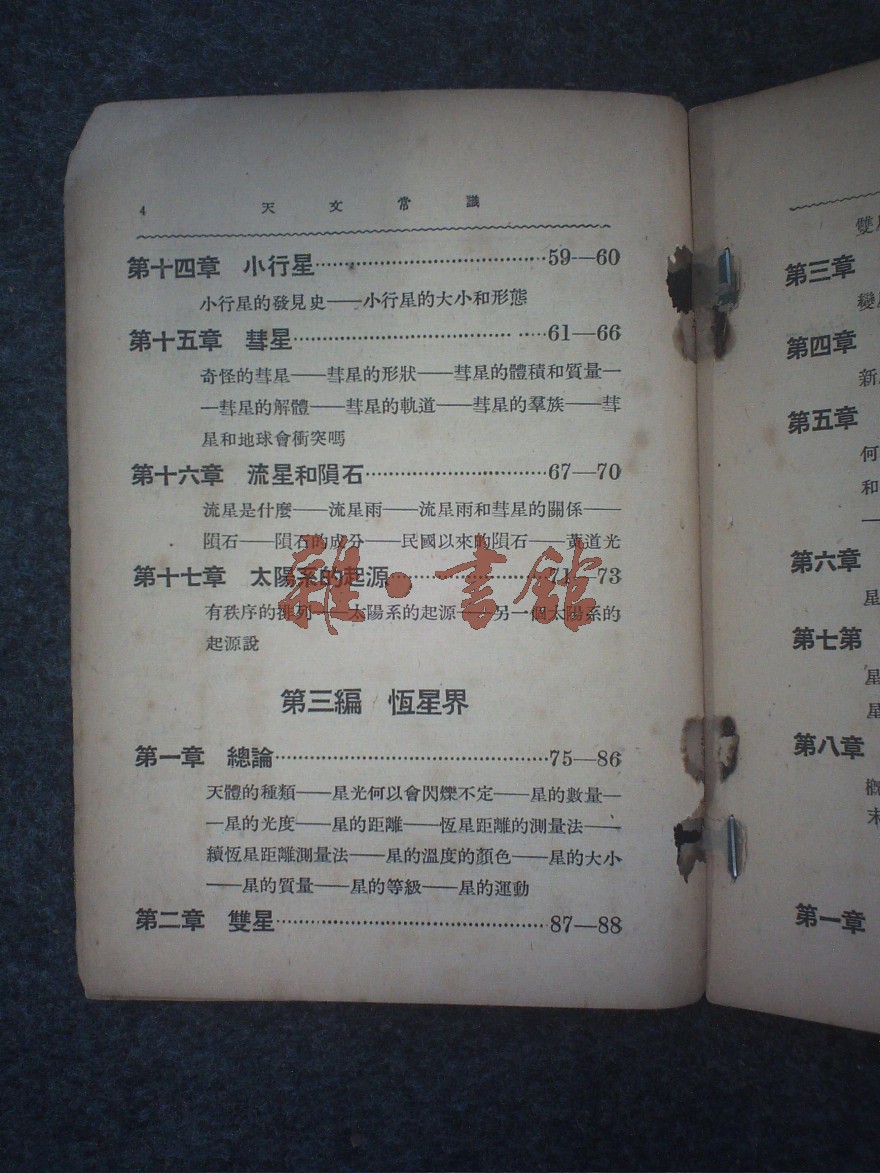 4 天文常識
第十四章 小行星……………………………59—60
小行星的發見史——小行星的大小和形態
第十五章 彗星……………………………61—66
奇怪的彗星——彗星的形狀——彗星的體積和質量—
—彗星的解體——彗星的軌道——彗星的羣族——彗
星和地球會衝突嗎
第十六章 流星和隕石……………………………67—70
流星是什麼——流星雨——流星雨和彗星的關係——
隕石——隕石的成分——民國以來的隕石——黃道光
第十七章 太陽系的起源……………………71—73
有秩序的排列——太陽系的起源——另一個太陽系的
起源說
第三編 恆星界
第一章 總論……………………………………75—86
天體的種類——星光何以會閃爍不定——星的數量—
—星的光度——星的距離——恆星距離的測量法——
續恆星距離測量法——星的溫度的顏色——星的大小
——星的質量——星的等級——星的運動
第二章 雙星……………………………………87—88
雜·書館
雙
第三章
變
第四章
新
第五章
何
和
—
第六章
星
第七第
星
星
第八章
觀
末
第一章